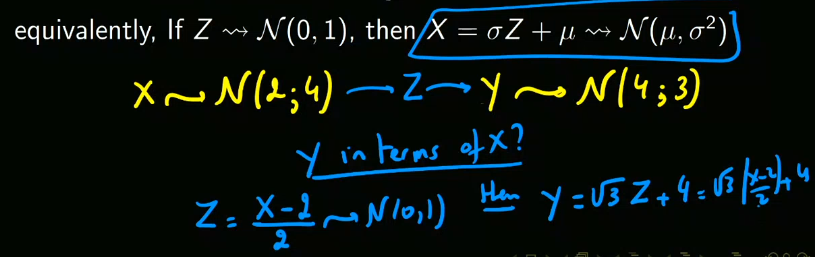 equivalently, If Z ⇝ 𝒩(0, 1), then X = σZ + μ ⇝ 𝒩(μ, σ²)
X ⇝ N(2;4) → Z → Y ⇝ N(4;3)
Y in terms of X?
Z = (X-2)/2 ⇝ N(0,1) then Y = √3 Z + 4 = √3 (X-2)/2 + 4